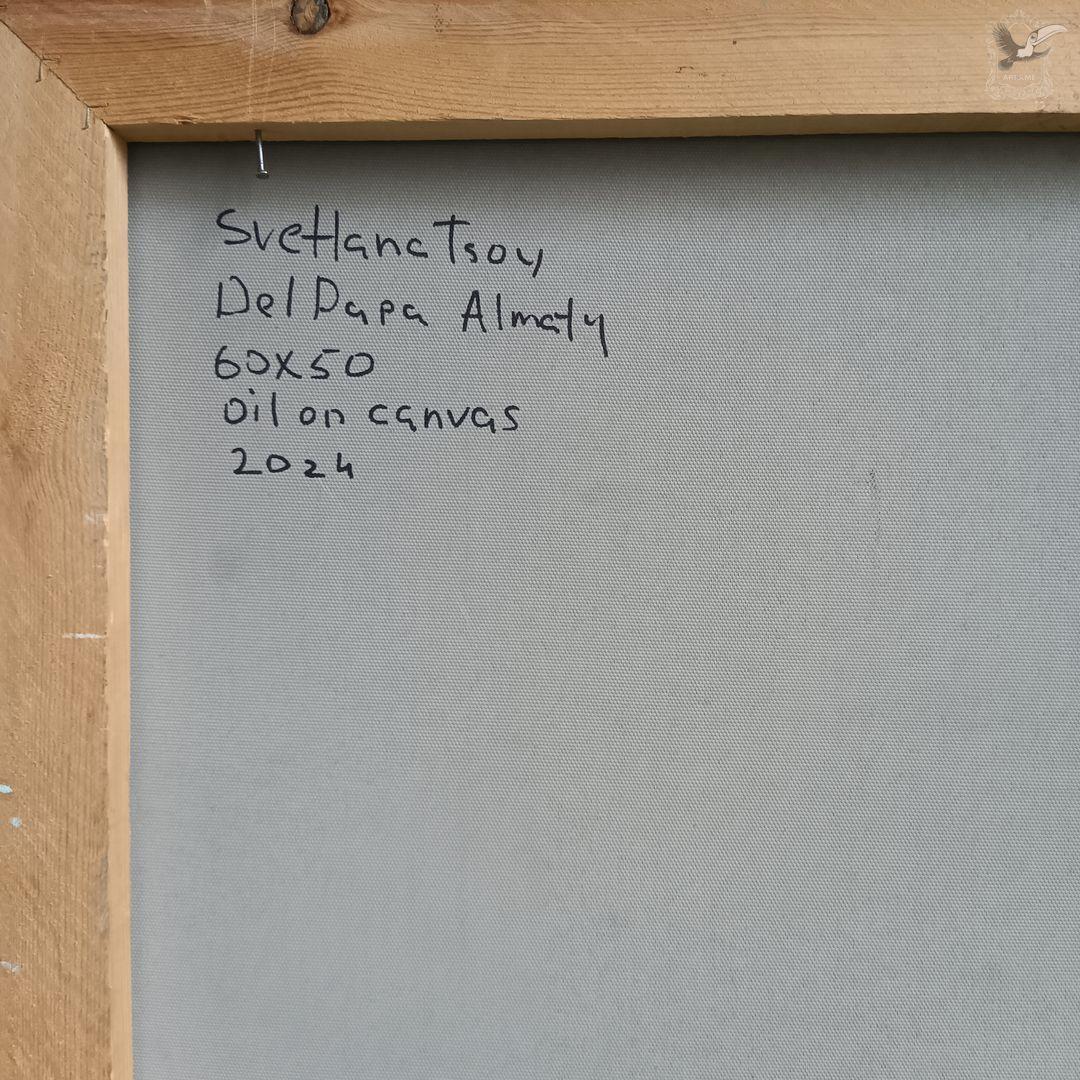 Svetlana Tsoy
Del Papa Almaty
60x50
oil on canvas
2024
ARTS.ME